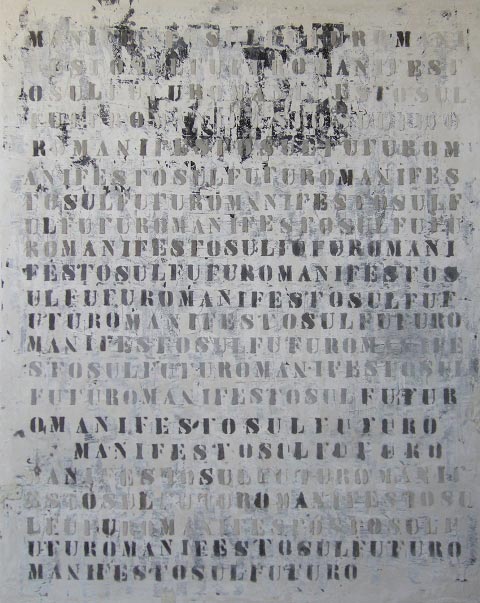 MANIFESTOSULFUTUROMANI
FESTOSULFUTUROMANIFEST
OSULFUTUROMANIFESTOSUL
ROMANIFESTOSULFUTUROM
ANIFESTOSULFUTUROMANIFES
TOSULFUTUROMANIFESTOSULF
ULFUTUROMANIFESTOSULFUTU
ROMANIFESTOSULFUTUROMANI
FESTOSULFUTUROMANIFESTOS
ULFUTUROMANIFESTOSULFUF
UTUROMANIFESTOSULFUTURO
MANIFESTOSULFUTUROMANIFE
STOSULFUTUROMANIFESTOSUL
FUTUROMANIFESTOSULFUTUR
OMANIFESTOSULFUTURO
MANIFESTOSULFUTURO
MANIFESTOSULFUTUROMANIF
ESTOSULFUTUROMANIFESTOSU
LFUTUROMANIFESTOSULF
UTUROMANIFESTOSULFUTURO
MANIFESTOSULFUTURO